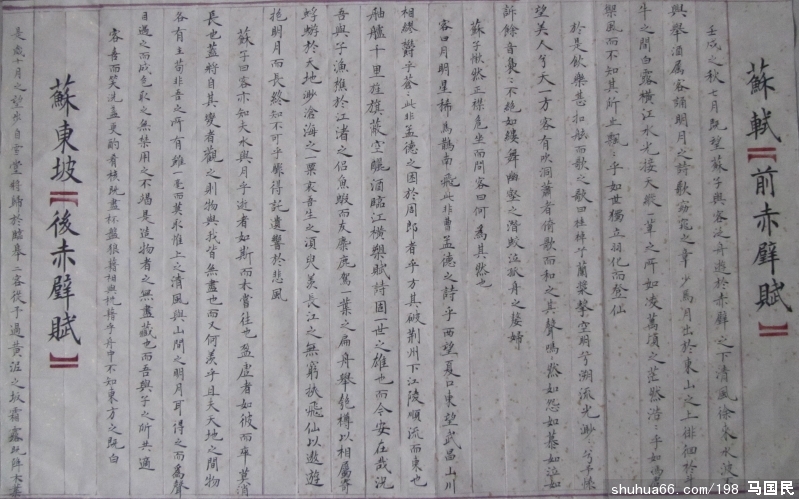 蘇軾【前赤壁賦】
壬戌之秋七月既望蘇子與客泛舟遊於赤壁之下清風徐來水波
興舉酒属客誦明月之詩歌窈窕之章少焉月出於東山之上徘徊於
牛之間白露橫江水光接天縱一葦之所如凌萬頃之茫然浩:乎如馮
禦風而不知其所止飄:乎如世獨立羽化而登仙
於是飲樂甚扣舷而歌之歌曰桂棹兮蘭槳擊空明兮溯流光渺:兮予懷
望美人兮天一方客有吹洞蕭者倚歌而和之其聲嗚:然如怨如慕如泣如
訴餘音裊:不絕如縷舞幽壑之潛蛟泣孤舟之嫠婦
蘇子愀然正襟危坐而問客曰何為其然也
客曰月明星稀烏鵲南飛此非曹孟德之詩乎西望夏口東望武昌山川
相繆鬱乎蒼:此非孟德之困於周郎者乎方其破荆州下江陵順流而東也
舳艫千里旌旗蔽空釃酒臨江橫槊賦詩固一世之雄也而今安在哉況
吾與子漁樵於江渚之侶魚蝦而友麋鹿駕一葉之扁舟舉匏樽以相屬寄
蜉蝣於天地渺滄海之一粟哀吾生之須臾羨長江之無窮挾飛仙以遨遊
抱明月而長終知不可乎驟得託遺響於悲風
蘇子曰客亦知夫水與月乎逝者如斯而未嘗往也盈虛者如彼而卒莫消
長也蓋將自其變者觀之則物與我皆無盡也而又何羨乎且夫天地之間物
各有主苟非吾之所有雖一毫而莫取惟上之清風與山間之明月耳得之而爲聲
目遇之而成色取之無禁用之不竭是造物者之無盡藏也而吾與子之所共適
客喜而笑洗盞更酌肴核既盡杯盤狼籍相與枕藉乎舟中不知東方之既白
蘇東坡【後赤壁賦】
是歲十月之望步自雪堂將歸於臨皋二客從予過黃泥之坂霜露既降木葉
shuhua66.com /198 马国民